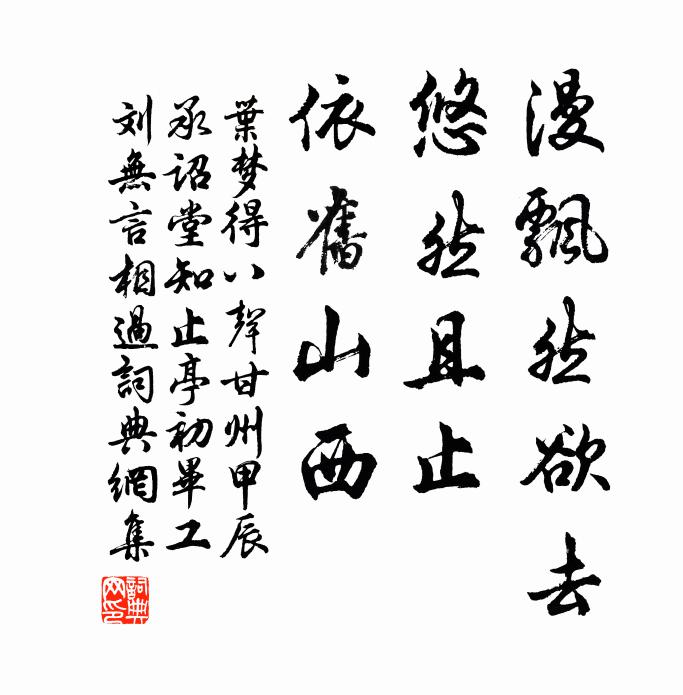 漫飄然欲去
悠然且止
依舊山西
葉梦得八聲甘州甲辰
承詔堂知止亭初畢工
刘無言相過詞典網集
詞典網印